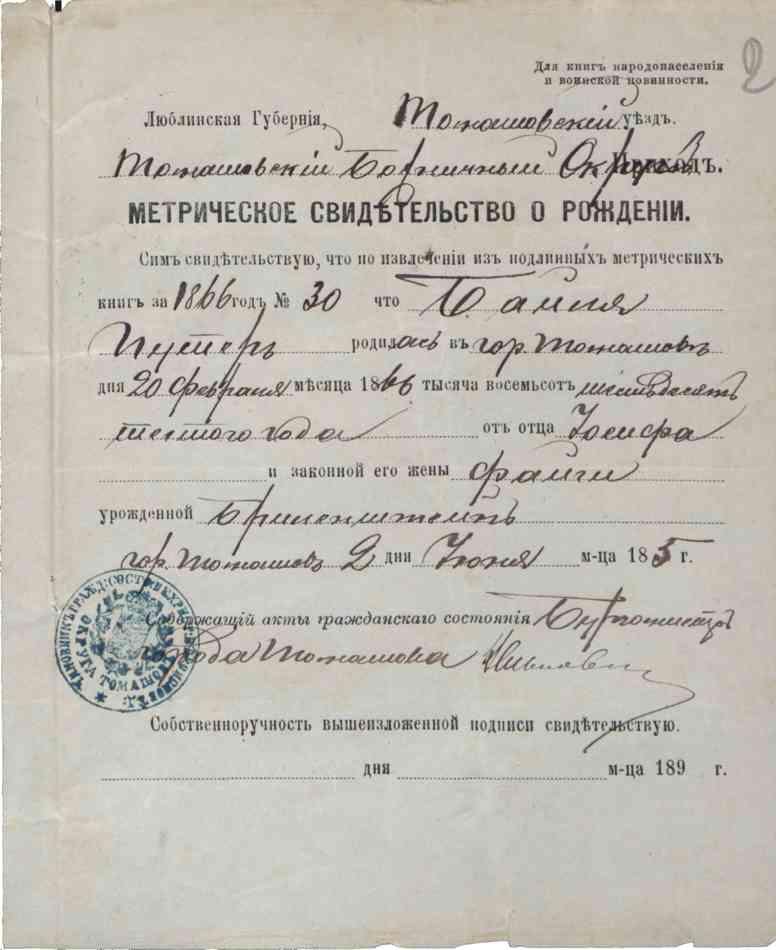 2
Для книгъ народонаселенія
и воинской повинности.
Люблинская Губернія, Томашовскій уѣздъ.
Томашовскій Божничный Округъ Приходъ.
МЕТРИЧЕСКОЕ СВИДѢТЕЛЬСТВО О РОЖДЕНІИ.
Симъ свидѣтельствую, что по извлеченіи изъ подлинныхъ метрическихъ
книгъ за 1866 годъ № 30 что
родилась въ гор. Томашовѣ
дня 20 Февраля мѣсяца 1866 тысяча восемьсотъ шестьдесятъ
шестого года отъ отца Іосифа
и законной его жены Файги
урожденной
гор. Томашовъ 2 дни Іюня м-ца 1895 г.
Содержащій акты гражданскаго состоянія Бургомистръ
Города Томашова
Собственноручность вышеизложенной подписи свидѣтельствую.
дня м-ца 189 г.